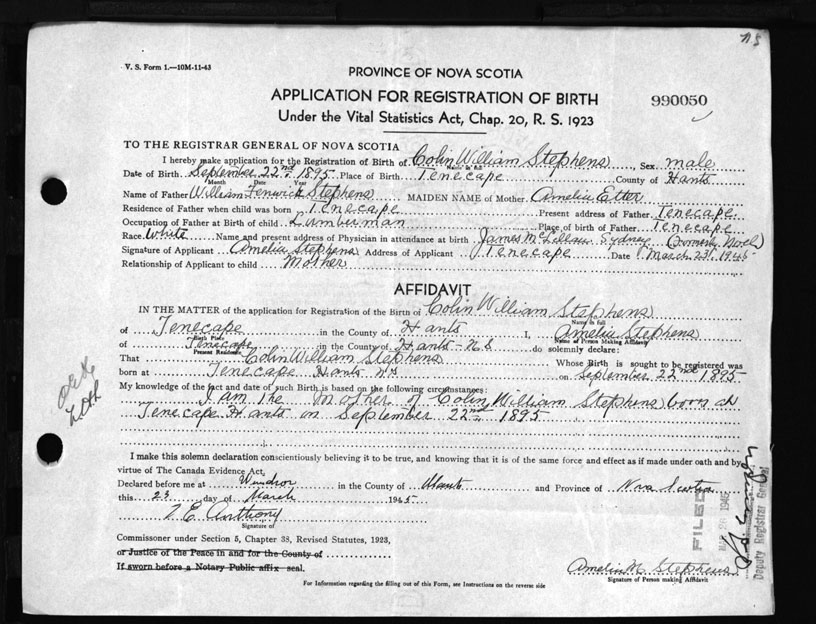 N S
V. S. Form 1.—10M-11-43
PROVINCE OF NOVA SCOTIA
APPLICATION FOR REGISTRATION OF BIRTH
990050
Under the Vital Statistics Act, Chap. 20, R. S. 1923
TO THE REGISTRAR GENERAL OF NOVA SCOTIA
I hereby make application for the Registration of Birth of Colin William Stephens, Sex male
Name in full
Date of Birth September 22nd 1895 Place of Birth Tenecape County of Hants
Month Date Year
Name of Father William Fenwick Stephens MAIDEN NAME of Mother Amelia Etter
Residence of Father when child was born Tenecape Present address of Father Tenecape
Occupation of Father at Birth of child Lumberman Place of birth of Father Tenecape
Race White Name and present address of Physician in attendance at birth James McLellan Sydney (Formerly Noel)
Signature of Applicant Amelia Stephens Address of Applicant Tenecape Date March 23, 1945
Relationship of Applicant to child Mother
AFFIDAVIT
IN THE MATTER of the application for Registration of the Birth of Colin William Stephens
Name in full
of Tenecape in the County of Hants I, Amelia Stephens
Birth Place Name of Person Making Affidavit
of Tenecape in the County of Hants - N S do solemnly declare:
Present Residence
That Colin William Stephens Whose Birth is sought to be registered was
born at Tenecape Hants NS on September 22nd 1895
My knowledge of the fact and date of such Birth is based on the following circumstances:
I am the Mother of Colin William Stephens born at
Tenecape Hants on September 22nd 1895
I make this solemn declaration conscientiously believing it to be true, and knowing that it is of the same force and effect as if made under oath and by
virtue of The Canada Evidence Act.
Declared before me at Windsor in the County of Hants and Province of Nova Scotia
this 23 day of March 1945
Signature of
Commissioner under Section 5, Chapter 38, Revised Statutes, 1923,
or Justice of the Peace in and for the County of
If sworn before a Notary Public affix seal.
Amelia M. Stephens
Signature of Person making Affidavit
For Information regarding the filling out of this Form, see Instructions on the reverse side
FILED
Deputy Registrar General